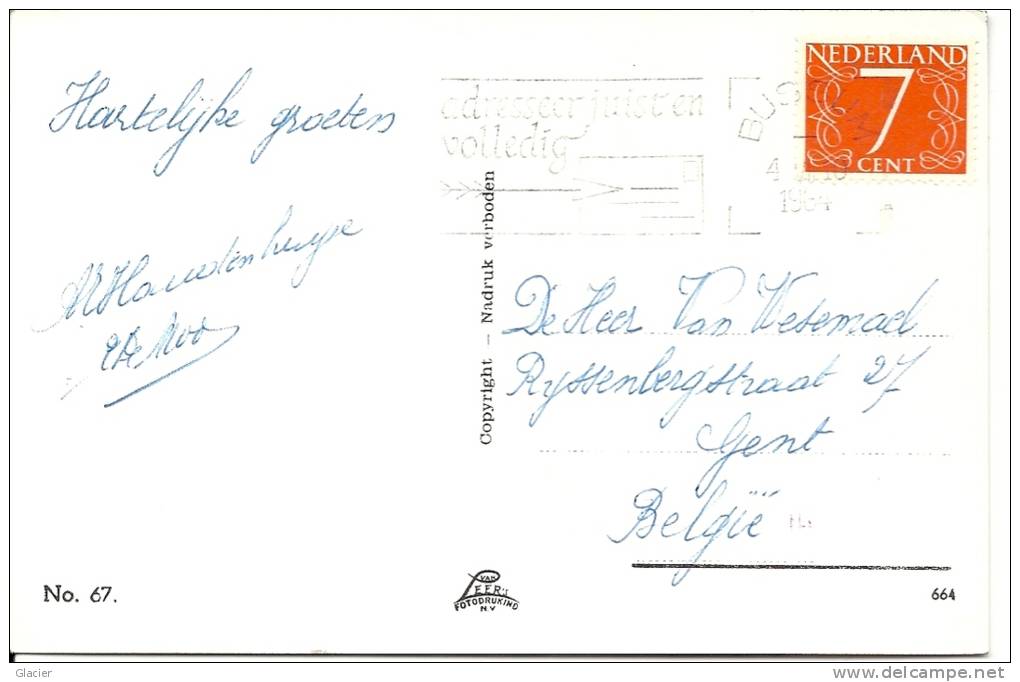 Hartelijke groeten
adresseer juist en
volledig
NEDERLAND
7
CENT
1964
Copyright – Nadruk verboden
De Heer Van Wesemael
Ryssenbergstraat 27
Gent
België
No. 67.
VAN
LEER'S
FOTODRUKIND
N.V
664
Glacier
www.delcampe.net